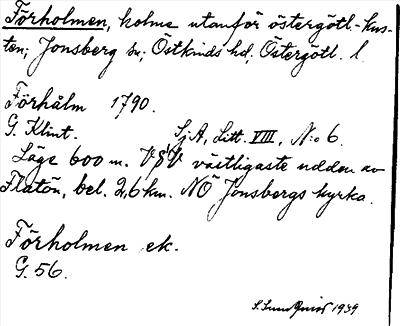 Förholmen, holme utanför östergötl. kus-
ten; Jonsberg sn; Östkinds hd, Östergötl. l.
Förhålm 1790.
G. Klint. SjA, Litt. VIII, N:o 6.
Läge 600 m. VSV västligaste udden av
Flatön, bel. 2,6 km. NO Jonsbergs kyrka.
Förholmen ek.
G. 56.
1939